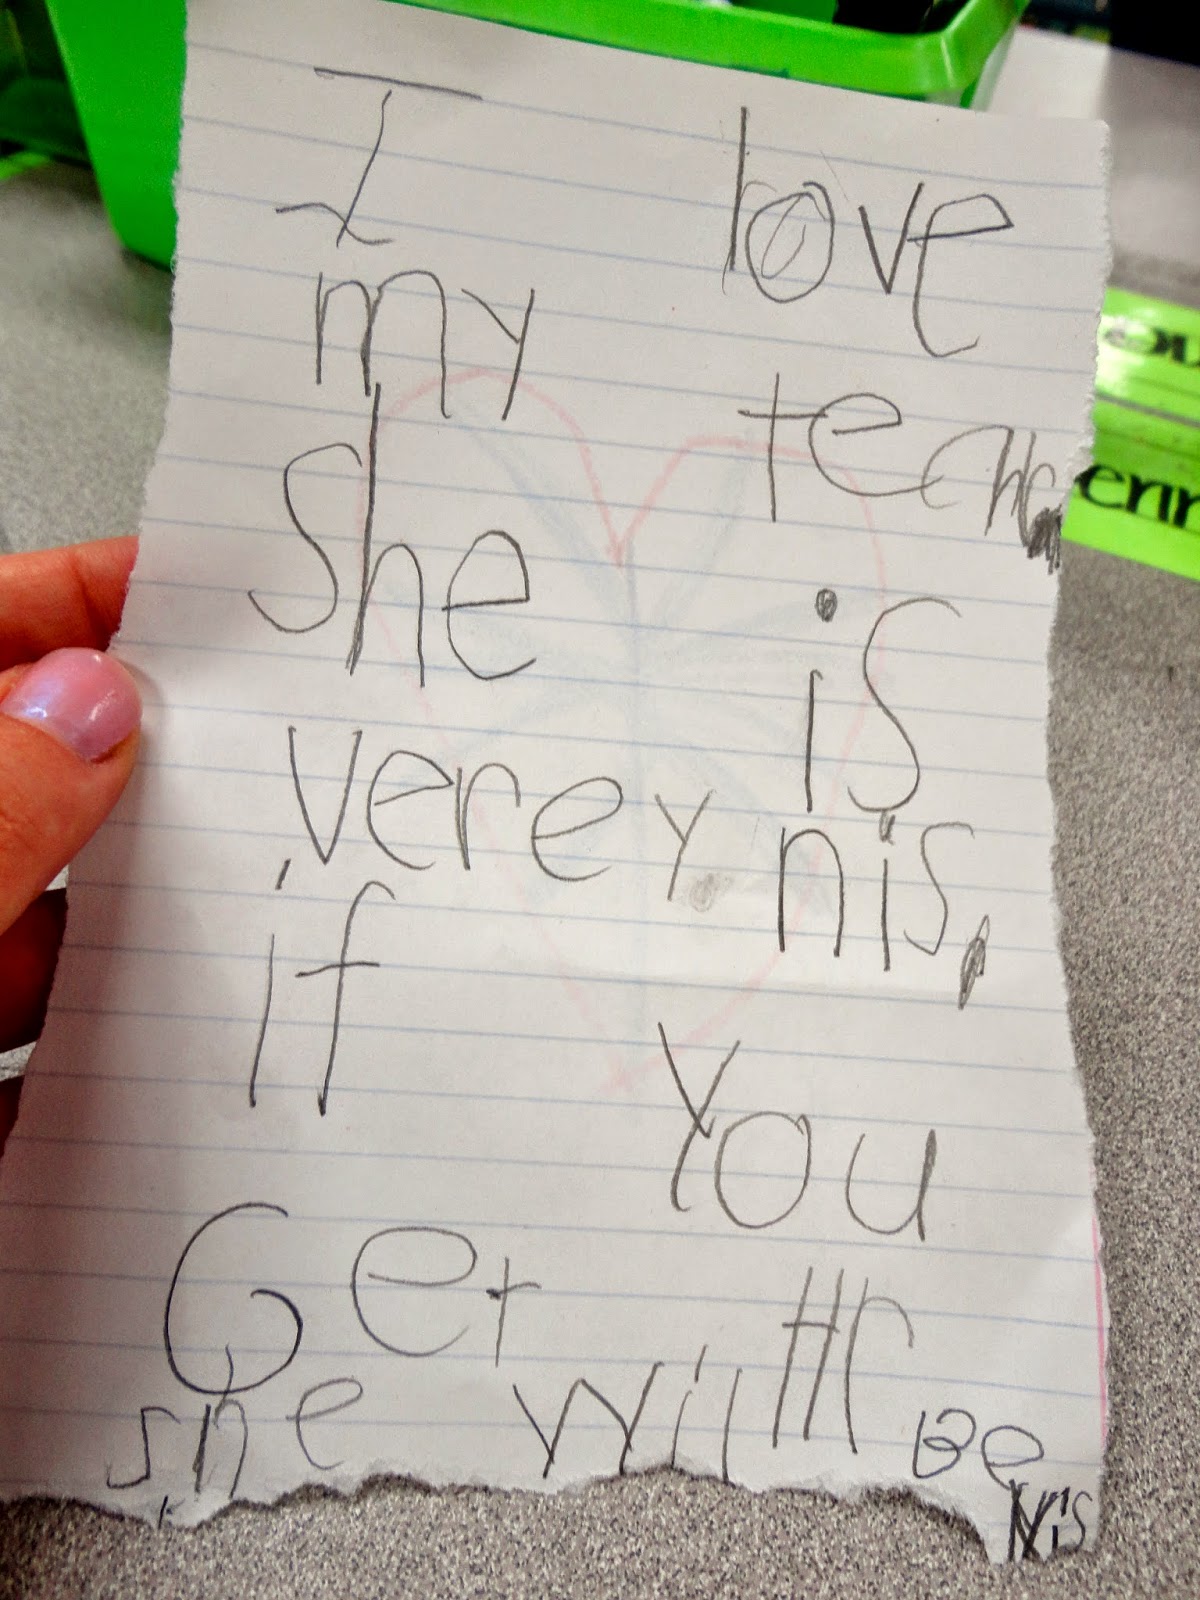 I love
my teach
she is
verey nis,
if you
Get Hr
she will Be
Nis